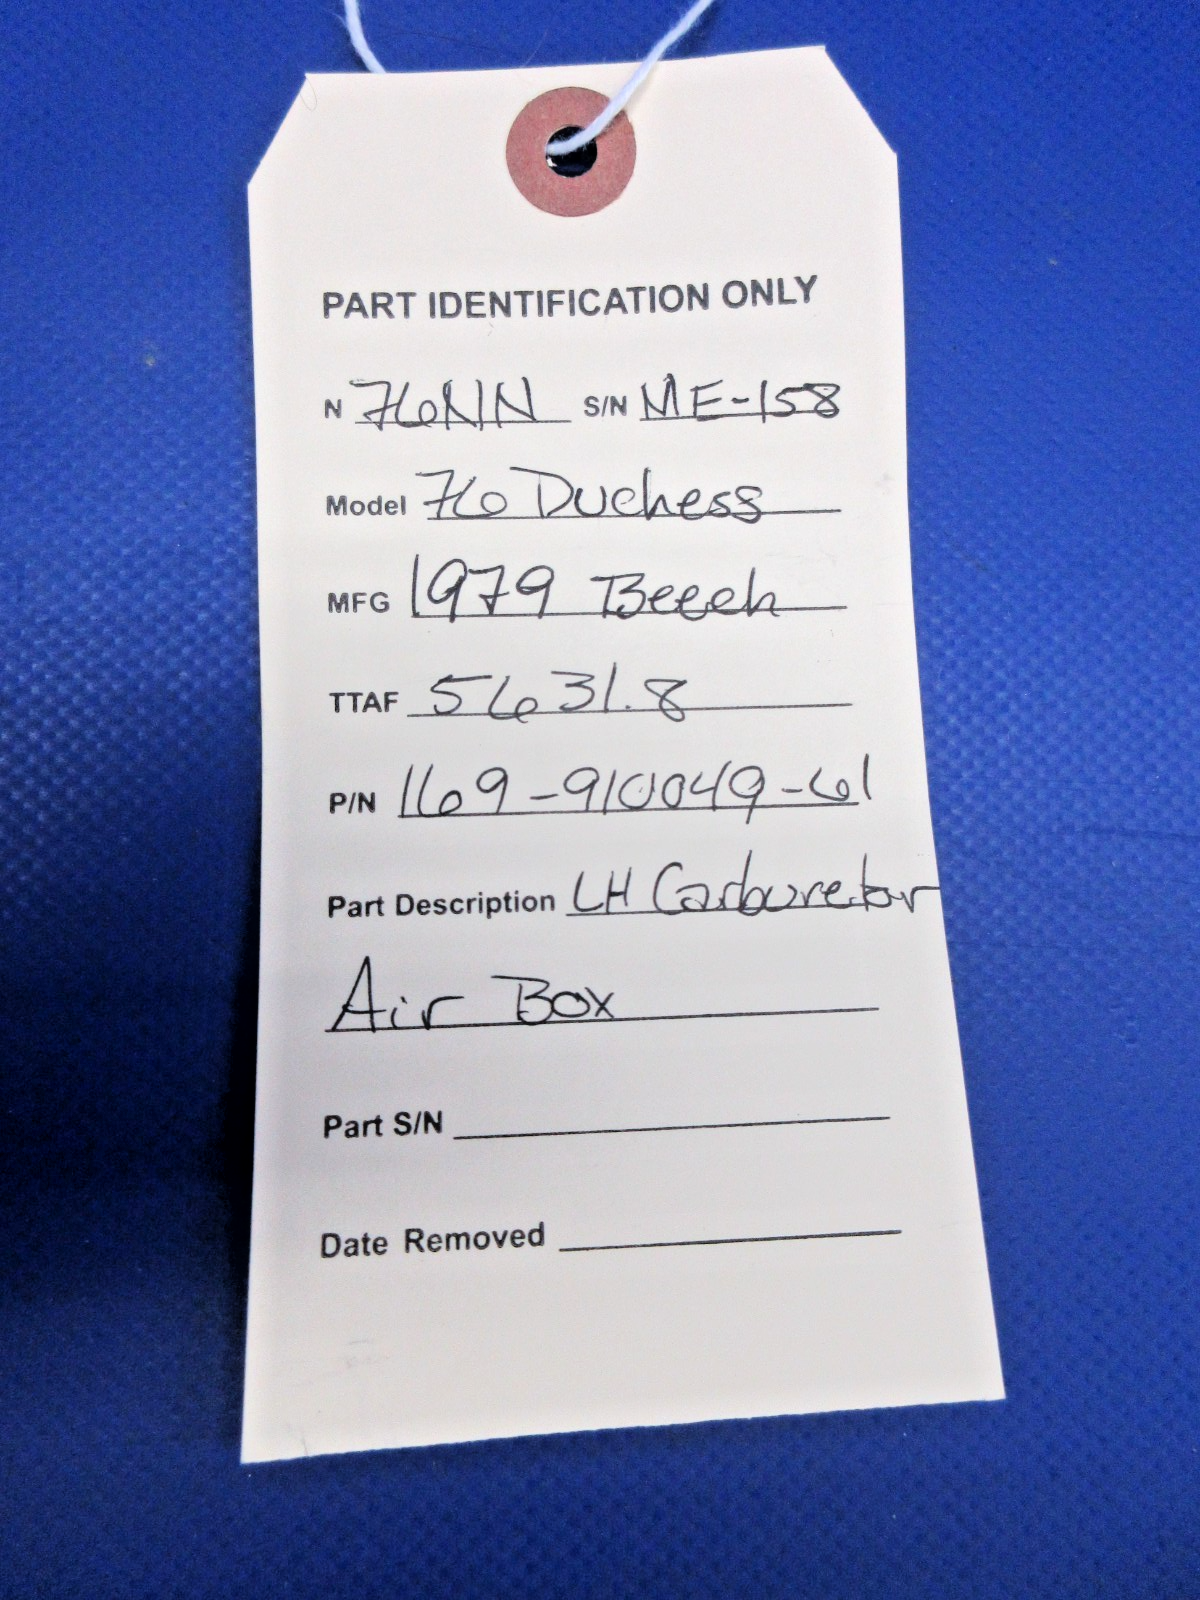 PART IDENTIFICATION ONLY
N 76NN S/N ME-158
Model 76 Duchess
MFG 1979 Beech
TTAF 5631.8
P/N 169-910049-61
Part Description LH Carburetor
Air Box
Part S/N
Date Removed